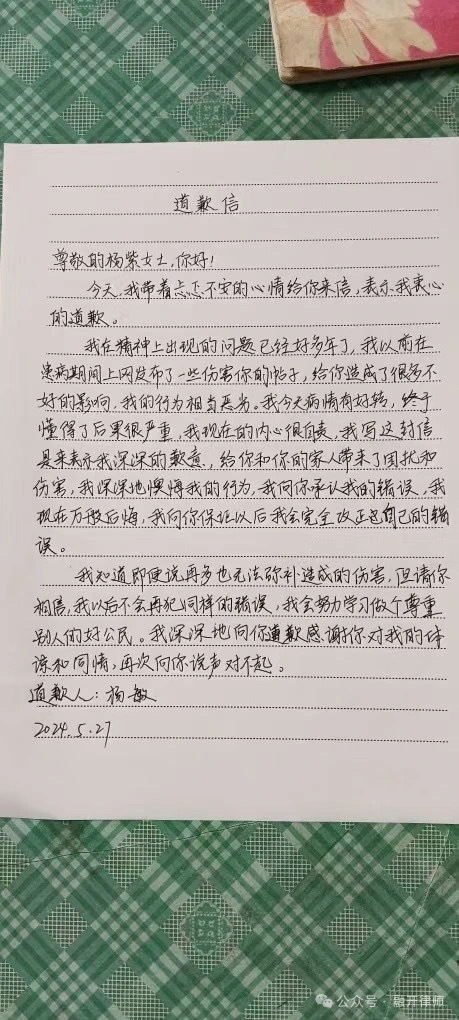 道歉信
尊敬的杨紫女士,你好!
今天,我带着忐忑不安的心情给你来信,表示我衷心
的道歉。
我在精神上出现的问题已经好多年了,我以前在
患病期间上网发布了一些伤害你的帖子,给你造成了很多不
好的影响,我的行为相当恶劣。我今天病情有好转,终于
懂得了后果很严重,我现在的内心很自责,我写这封信
是来表示我深深的歉意,给你和你的家人带来了困扰和
伤害,我深深地懊悔我的行为,我向你承认我的错误,我
现在万般后悔,我向你保证以后我会完全改正自己的错
误。
我知道即便说再多也无法弥补造成的伤害,但请你
相信,我以后不会再犯同样的错误,我会努力学习做个尊重
别人的好公民。我深深地向你道歉感谢你对我的体
谅和同情,再次向你说声对不起。
道歉人:杨敏
2024.5.27
公众号·融开律师